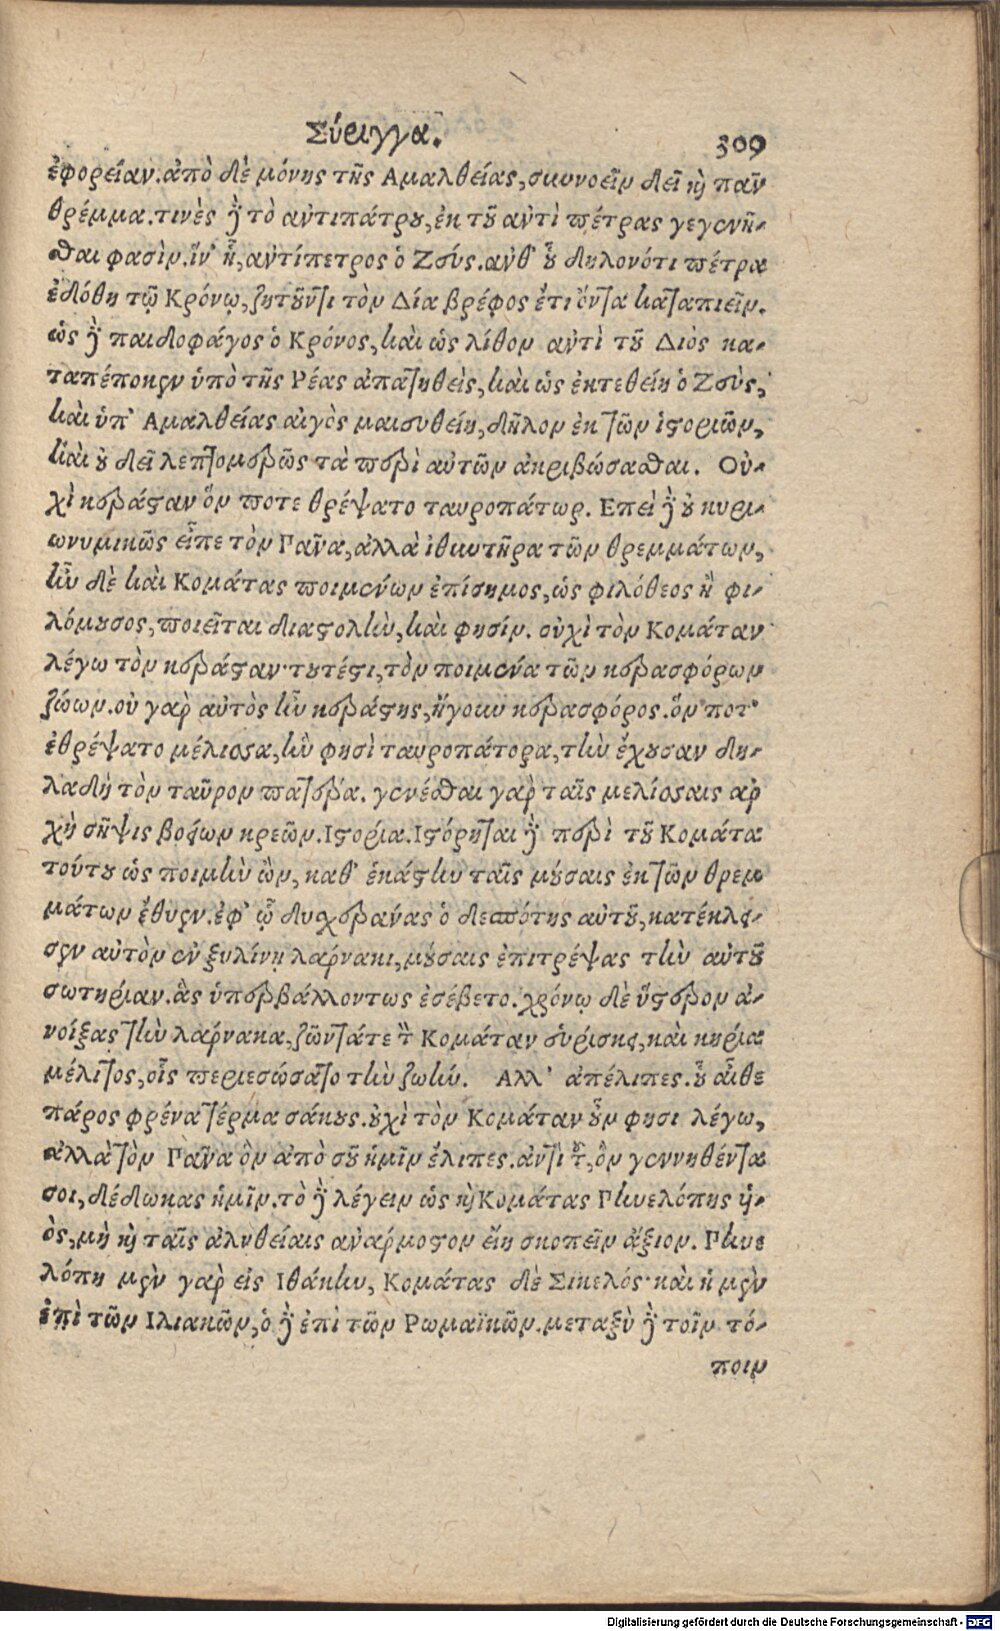 Σύριγγα. 309
ἐφορείαν. ἀπὸ δὲ μόνης τῆς Αμαλθείας, συννοεῖν δεῖ καὶ πᾶν
θρέμμα. τινὲς δὲ τὸ ἀντιπάτρου, ἐκ τοῦ ἀντὶ πέτρας γεγενῆ-
σθαι φασὶν. ἵν' ᾖ, ἀντίπετρος ὁ Ζεύς. ἀνθ' οὗ δηλονότι πέτρα
ἐδόθη τῷ Κρόνῳ, ζητοῦντι τὸν Δία βρέφος ἔτι ὄντα καταπιεῖν.
ὡς δὲ παιδοφάγος ὁ Κρόνος, καὶ ὡς λίθον ἀντὶ τοῦ Διὸς κα-
ταπέπωκεν ὑπὸ τῆς Ρέας ἀπατηθεὶς, καὶ ὡς ἐκτεθείη ὁ Ζεὺς,
καὶ ὑπ' Αμαλθείας αἰγὸς μαιευθείη, δῆλον ἐκ τῶν ἱστοριῶν,
καὶ οὐ δεῖ λεπτομερῶς τὰ περὶ αὐτῶν ἀκριβώσασθαι. Οὐ-
χὶ κεράσταν ὅν ποτε θρέψατο ταυροπάτωρ. Επεὶ δὲ οὐ κυρι-
ωνυμικῶς εἶπε τὸν Πᾶνα, ἀλλὰ ἰθυντῆρα τῶν θρεμμάτων,
ἦν δὲ καὶ Κομάτας ποιμένων ἐπίσημος, ὡς φιλόθεος ἢ φι-
λόμουσος, ποιεῖται διαστολὴν, καὶ φησίν. οὐχὶ τὸν Κομάταν
λέγω τὸν κεράσταν· τουτέστι, τὸν ποιμένα τῶν κερασφόρων
ζώων. οὐ γὰρ αὐτὸς ἦν κεράστης, ἤγουν κερασφόρος. ὅν ποτ'
ἐθρέψατο μέλισσα, ἣν φησὶ ταυροπάτορα, τὴν ἔχουσαν δη-
λαδὴ τὸν ταῦρον πατέρα. γενέσθαι γὰρ ταῖς μελίσσαις ἀρ
χὴ σῆψις βοείων κρεῶν. Ιστορία. Ιστόρηται δὲ περὶ τοῦ Κομάτα
τούτου ὡς ποιμὴν ὢν, καθ' ἑκάστην ταῖς μούσαις ἐκ τῶν θρεμ
μάτων ἔθυεν. ἐφ' ᾧ δυσχεράνας ὁ δεσπότης αὐτοῦ, κατέκλει-
σεν αὐτὸν ἐν ξυλίνῃ λάρνακι, μούσαις ἐπιτρέψας τὴν αὐτοῦ
σωτηρίαν. ἃς ὑπερβάλλοντως ἐσέβετο. χρόνῳ δὲ ὕστερον ἀ-
νοίξας τὴν λάρνακα, ζῶντά τε τὸν Κομάταν εὑρίσκει, καὶ κηρία
μέλιτος, οἷς περιεσώσατο τὴν ζωήν. Αλλ' ἀπέλιπες. οὗ αἶθε
πάρος φρένα τέρμα σάκους. οὐχὶ τὸν Κομάταν οὖν φησι λέγω,
ἀλλὰ τὸν Πᾶνα ὃν ἀπὸ σοῦ ἡμῖν ἔλιπες. ἀντὶ τοῦ, ὃν γεννηθέντα
σοι, δέδωκας ἡμῖν. τὸ δὲ λέγειν ὡς καὶ Κομάτας Πηνελόπης υἱ-
ὸς, μὴ καὶ ταῖς ἀληθείαις ἀνάρμοστον εἴη σκοπεῖν ἄξιον. Πηνε
λόπη μὲν γὰρ εἰς Ιθάκην, Κομάτας δὲ Σικελός· καὶ ἡ μὲν
ἐπὶ τῶν Ιλιακῶν, ὁ δὲ ἐπὶ τῶν Ρωμαϊκῶν. μεταξὺ δὲ τοῖν τό-
ποιν
Digitalisierung gefördert durch die Deutsche Forschungsgemeinschaft - DFG